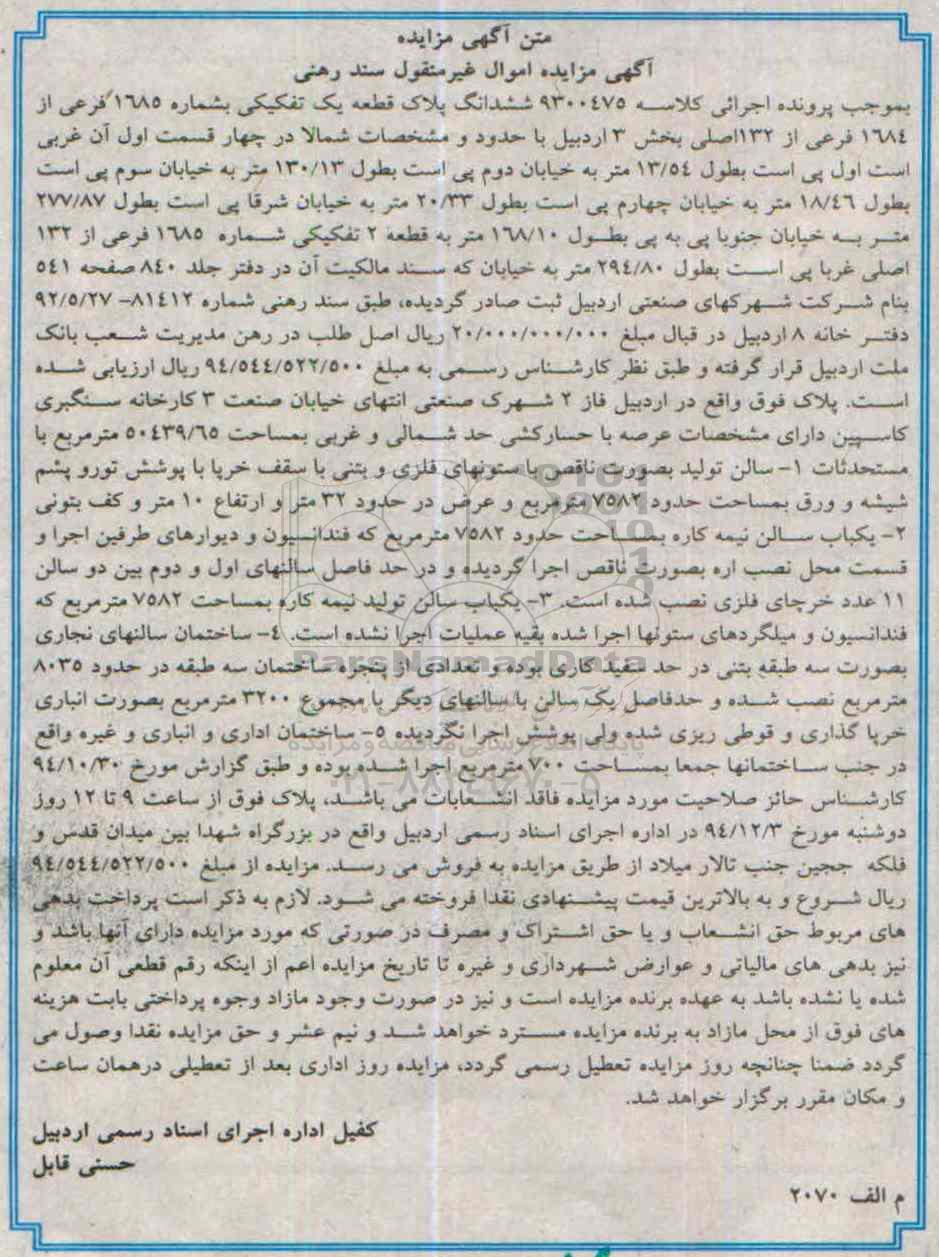 متن آگهی مزایده
آگهی مزایده اموال غیرمنقول سند رهنی
بموجب پرونده اجرائی کلاسه ۹۳۰۰٤۷۵ ششدانگ پلاک قطعه یک تفکیکی بشماره ۱٦۸۵ فرعی از
۱٦۸٤ فرعی از ۱۳۲اصلی بخش ۳ اردبیل با حدود و مشخصات شمالا در چهار قسمت اول آن غربی
است اول پی است بطول ۱۳/۵٤ متر به خیابان دوم پی است بطول ۱۳۰/۱۳ متر به خیابان سوم پی است
بطول ۱۸/٤٦ متر به خیابان چهارم پی است بطول ۲۰/۳۳ متر به خیابان شرقا پی است بطول ۲۷۷/۸۷
متر به خیابان جنوبا پی به پی بطول ۱٦۸/۱۰ متر به قطعه ۲ تفکیکی شماره ۱٦۸۵ فرعی از ۱۳۲
اصلی غربا پی است بطول ۲۹٤/۸۰ متر به خیابان که سند مالکیت آن در دفتر جلد ۸٤۰ صفحه ۵٤۱
بنام شرکت شهرکهای صنعتی اردبیل ثبت صادر گردیده، طبق سند رهنی شماره ۸۱٤۱۲- ۹۲/۵/۲۷
دفتر خانه ۸ اردبیل در قبال مبلغ ۲۰/۰۰۰/۰۰۰/۰۰۰ ریال اصل طلب در رهن مدیریت شعب بانک
ملت اردبیل قرار گرفته و طبق نظر کارشناس رسمی به مبلغ ۹٤/۵٤٤/۵۲۲/۵۰۰ ریال ارزیابی شده
است. پلاک فوق واقع در اردبیل فاز ۲ شهرک صنعتی انتهای خیابان صنعت ۳ کارخانه سنگبری
کاسپین دارای مشخصات عرصه با حسارکشی حد شمالی و غربی بمساحت ۵۰٤۳۹/٦۵ مترمربع با
مستحدثات ۱- سالن تولید بصورت ناقص با ستونهای فلزی و بتنی با سقف خرپا با پوشش تورو پشم
شیشه و ورق بمساحت حدود ۷۵۸۲ مترمربع و عرض در حدود ۳۲ متر و ارتفاع ۱۰ متر و کف بتونی
۲- یکباب سالن نیمه کاره بمساحت حدود ۷۵۸۲ مترمربع که فندانسیون و دیوارهای طرفین اجرا و
قسمت محل نصب اره بصورت ناقص اجرا گردیده و در حد فاصل سالنهای اول و دوم بین دو سالن
۱۱ عدد خرچای فلزی نصب شده است. ۳- یکباب سالن تولید نیمه کاره بمساحت ۷۵۸۲ مترمربع که
فندانسیون و میلگردهای ستونها اجرا شده بقیه عملیات اجرا نشده است. ٤- ساختمان سالنهای نجاری
بصورت سه طبقه بتنی در حد سفید کاری بوده و تعدادی از پنجره ساختمان سه طبقه در حدود ۸۰۳۵
مترمربع نصب شده و حدفاصل یک سالن با سالنهای دیگر با مجموع ۳۲۰۰ مترمربع بصورت انباری
خرپا گذاری و قوطی ریزی شده ولی پوشش اجرا نگردیده ۵- ساختمان اداری و انباری و غیره واقع
در جنب ساختمانها جمعا بمساحت ۷۰۰ مترمربع اجرا شده بوده و طبق گزارش مورخ ۹٤/۱۰/۳۰
کارشناس حائز صلاحیت مورد مزایده فاقد انشعابات می باشد، پلاک فوق از ساعت ۹ تا ۱۲ روز
دوشنبه مورخ ۹٤/۱۲/۳ در اداره اجرای اسناد رسمی اردبیل واقع در بزرگراه شهدا بین میدان قدس و
فلکه ججین جنب تالار میلاد از طریق مزایده به فروش می رسد. مزایده از مبلغ ۹٤/۵٤٤/۵۲۲/۵۰۰
ریال شروع و به بالاترین قیمت پیشنهادی نقدا فروخته می شود. لازم به ذکر است پرداخت بدهی
های مربوط حق انشعاب و یا حق اشتراک و مصرف در صورتی که مورد مزایده دارای آنها باشد و
نیز بدهی های مالیاتی و عوارض شهرداری و غیره تا تاریخ مزایده اعم از اینکه رقم قطعی آن معلوم
شده یا نشده باشد به عهده برنده مزایده است و نیز در صورت وجود مازاد وجوه پرداختی بابت هزینه
های فوق از محل مازاد به برنده مزایده مسترد خواهد شد و نیم عشر و حق مزایده نقدا وصول می
گردد ضمنا چنانچه روز مزایده تعطیل رسمی گردد، مزایده روز اداری بعد از تعطیلی درهمان ساعت
و مکان مقرر برگزار خواهد شد.
کفیل اداره اجرای اسناد رسمی اردبیل
حسنی قابل
م الف ۲۰۷۰
ParsNamadData
پایگاه اطلاع رسانی مناقصه و مزایده